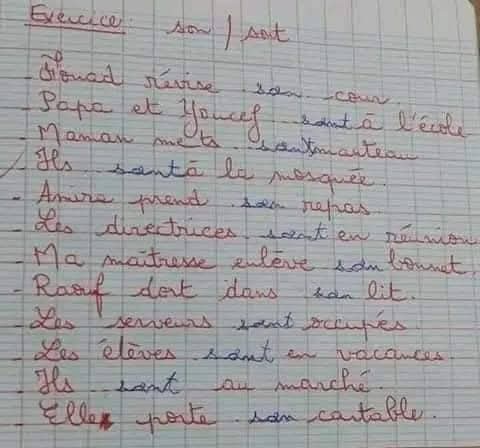 Exercice: son / sont
- Fouad révise son cour.
- Papa et Youcef sont à l'école
- Maman mets son manteau
- Ils sont à la mosquée.
- Amira prend son repas.
- Les directrices sont en réunion
- Ma maîtresse enlève son bonnet.
- Raouf dort dans son lit.
- Les serveurs sont occupés.
- Les élèves sont en vacances.
- Ils sont au marché.
- Elle porte son cartable.